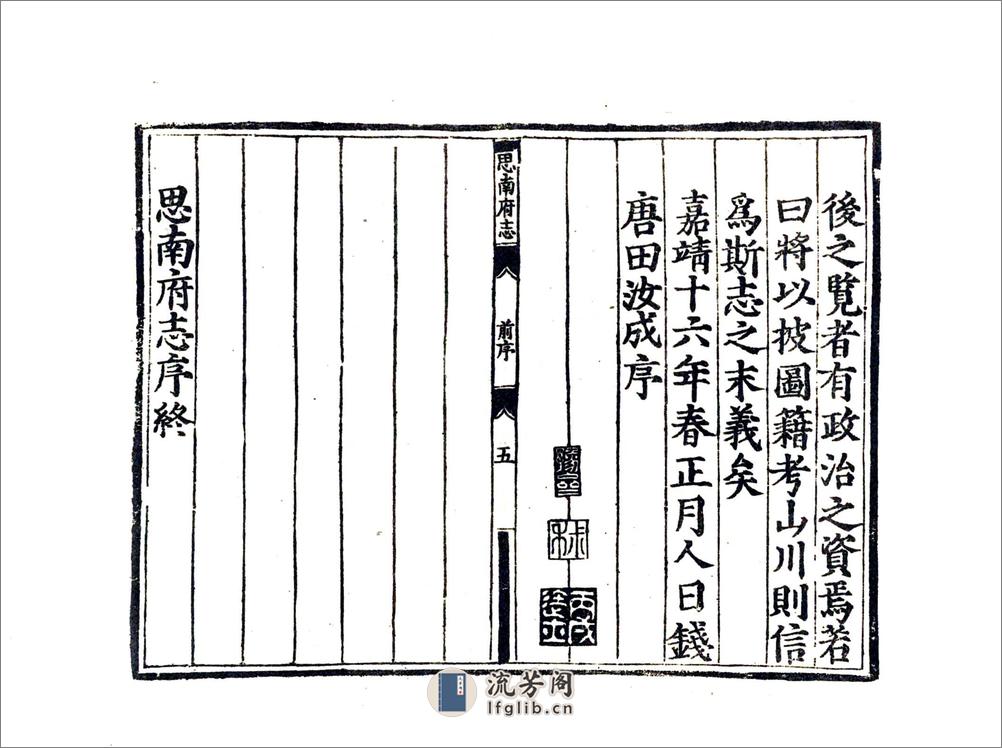 後之覧者有政治之資焉若
曰將以披圖籍考山川則信
爲斯志之末義矣
嘉靖十六年春正月人日錢
唐田汝成序
思南府志
前序
五
思南府志序終
流芳阁
lfglib.cn